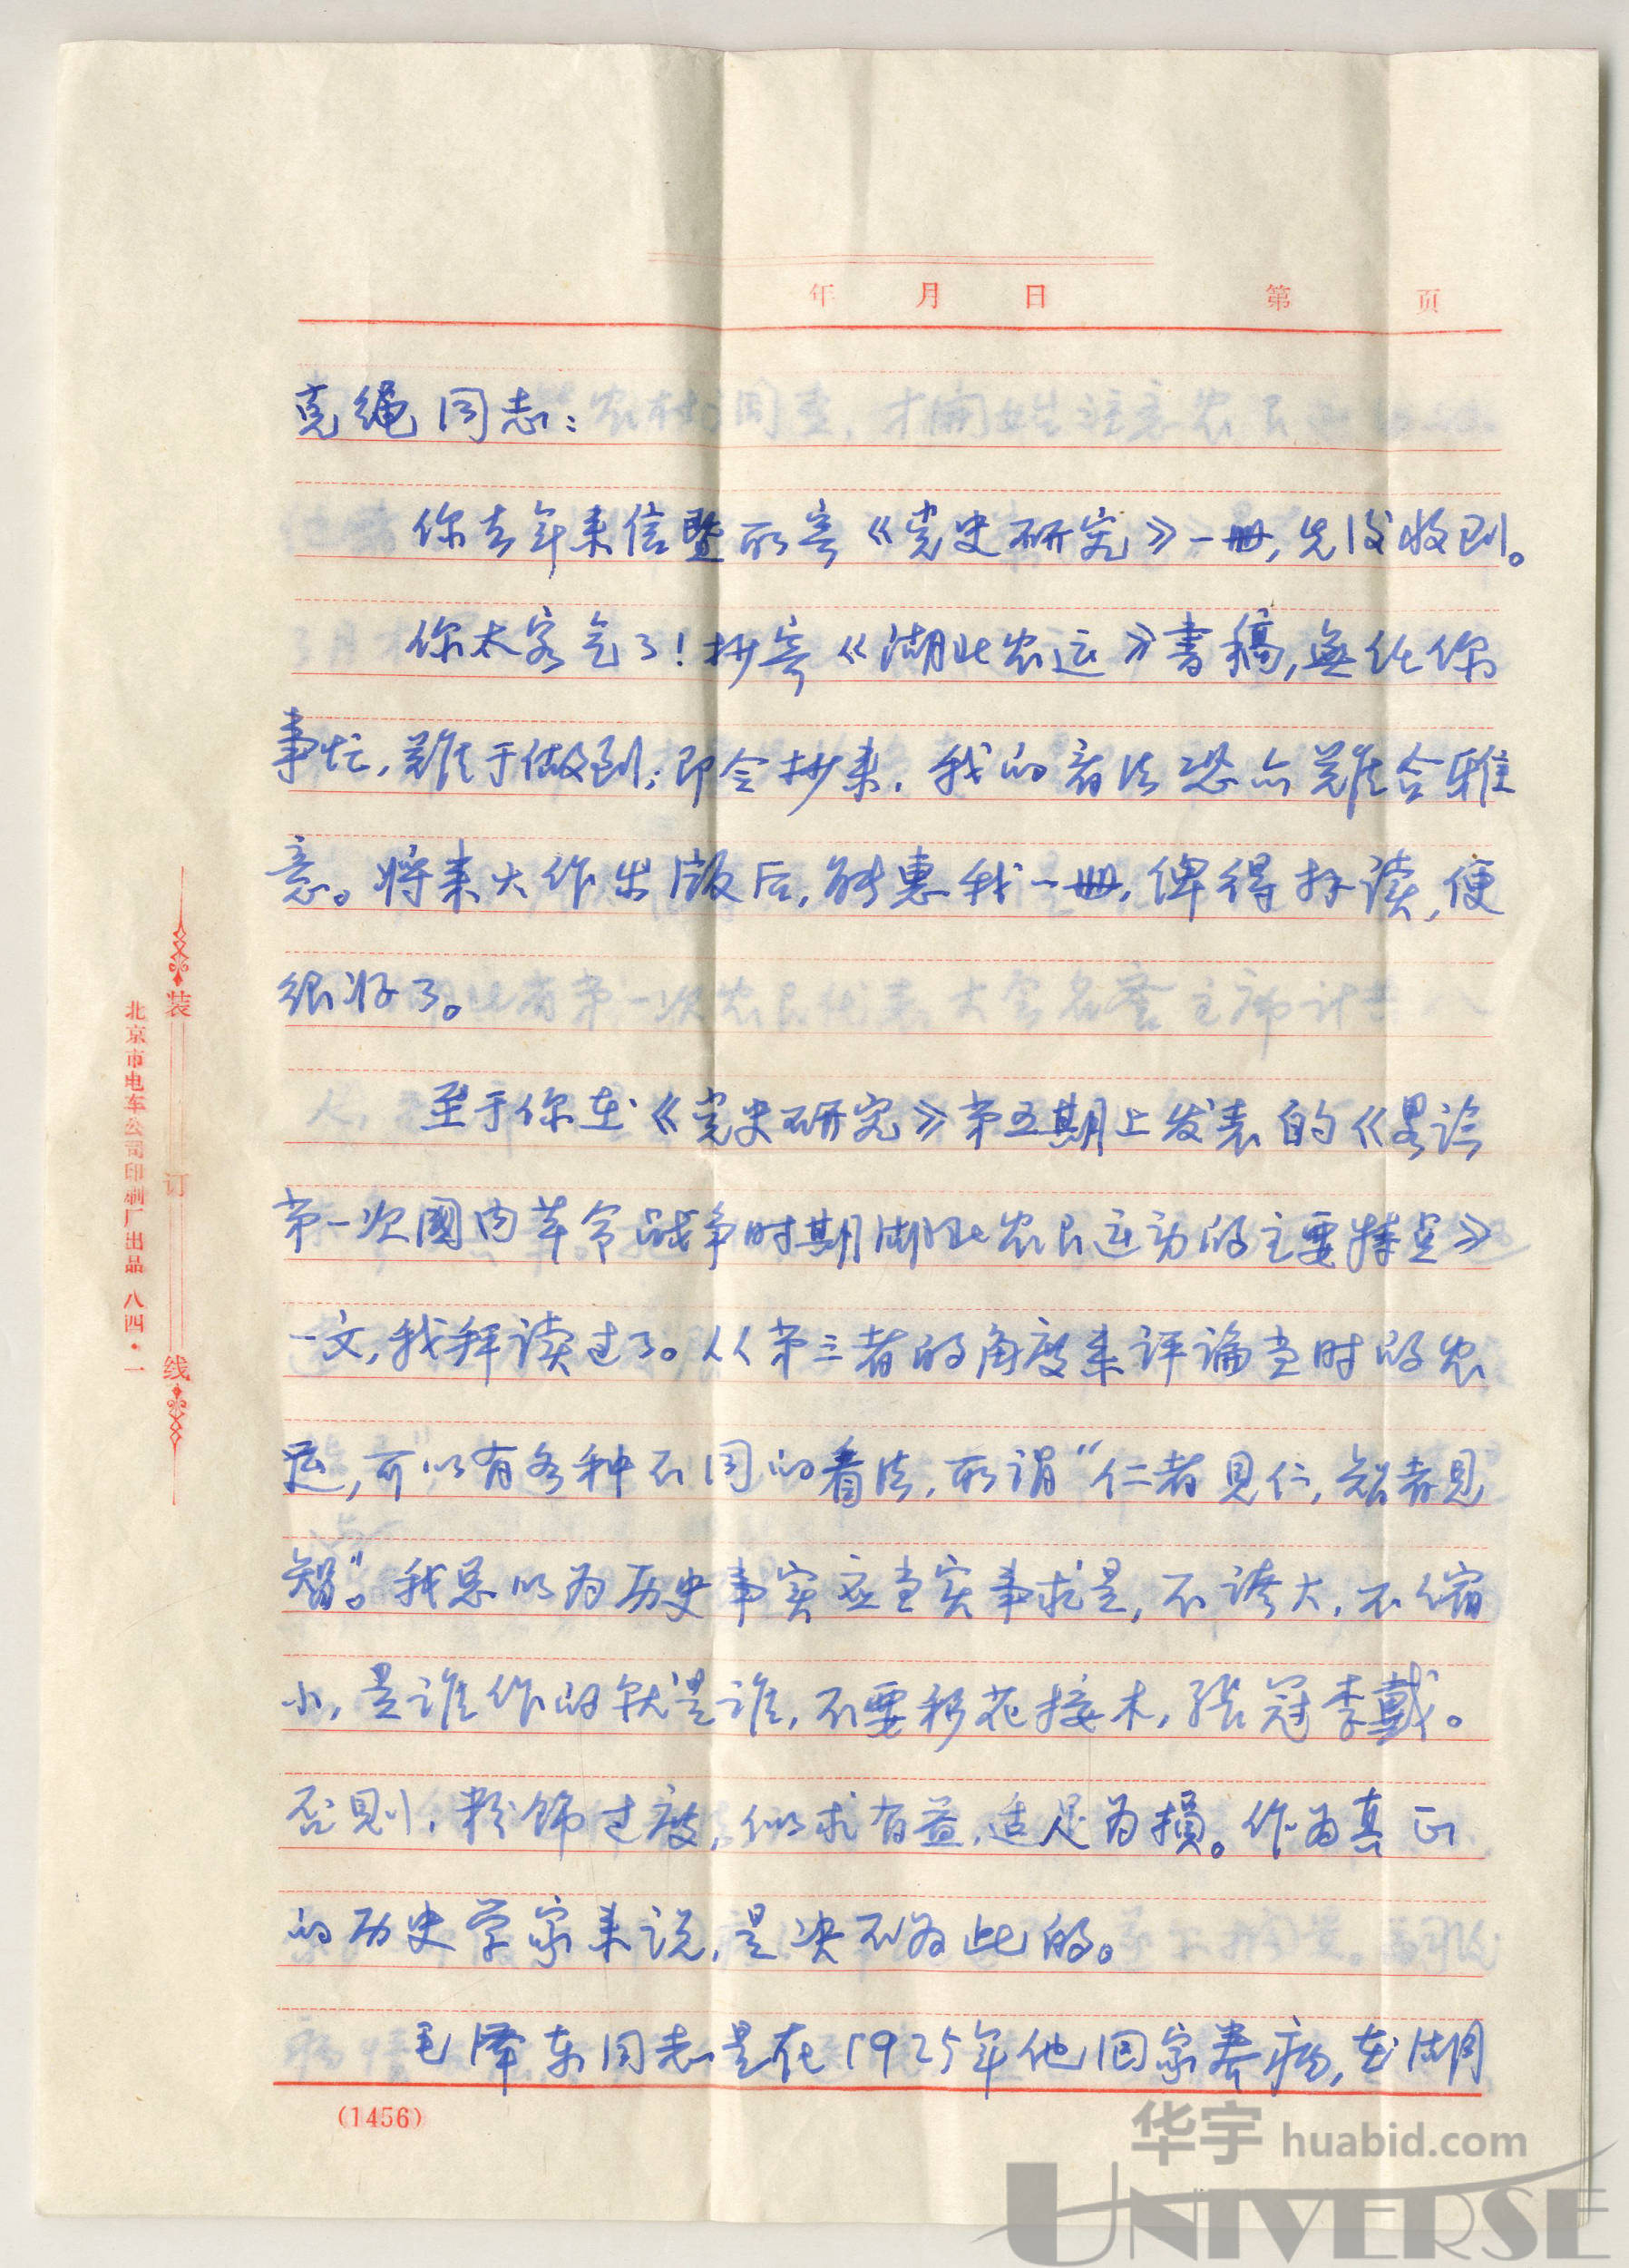 年 月 日 第 页
克绳同志：
你去年来信暨所寄《党史研究》一册，先后收到。
你太客气了！抄寄《湖北农运》书稿，無任你
事忙，難于做到；即令抄来，我的看法恐亦難合雅
意。将来大作出版后，能惠我一册，俾得拜读，便
很好了。
至于你在《党史研究》第五期上发表的《畧论
第一次國内革命战争时期湖北农民运动的主要特点》
一文，我拜读过了。从第三者的角度来评論当时的农
运，可以有各种不同的看法，所谓“仁者見仁，智者見
智”。我总以为历史事实应当实事求是，不誇大，不缩
小，是谁作的就是谁，不要移花接木，張冠李戴。
否則，粉饰过度，似求有益，适足为損。作为真正
的历史学家来说，是决不为此的。
毛泽东同志是在1925年他回家养病，在湖
(1456)
装订线
北京市电车公司印刷厂出品 八四·一
华宇 huabid.com
UNIVERSE